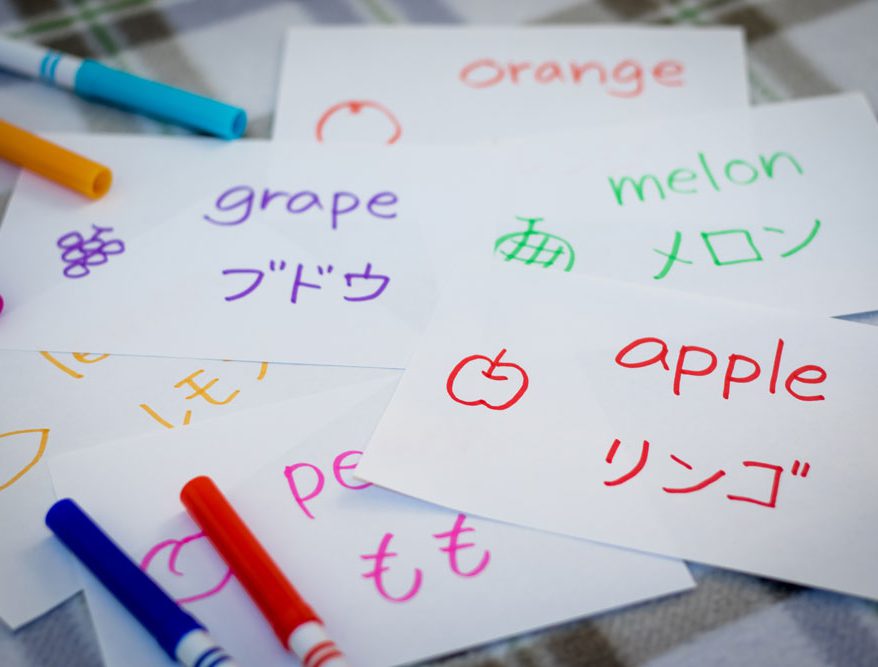 orange
grape
ブドウ
melon
メロン
apple
リンゴ
レモ
pe
もも